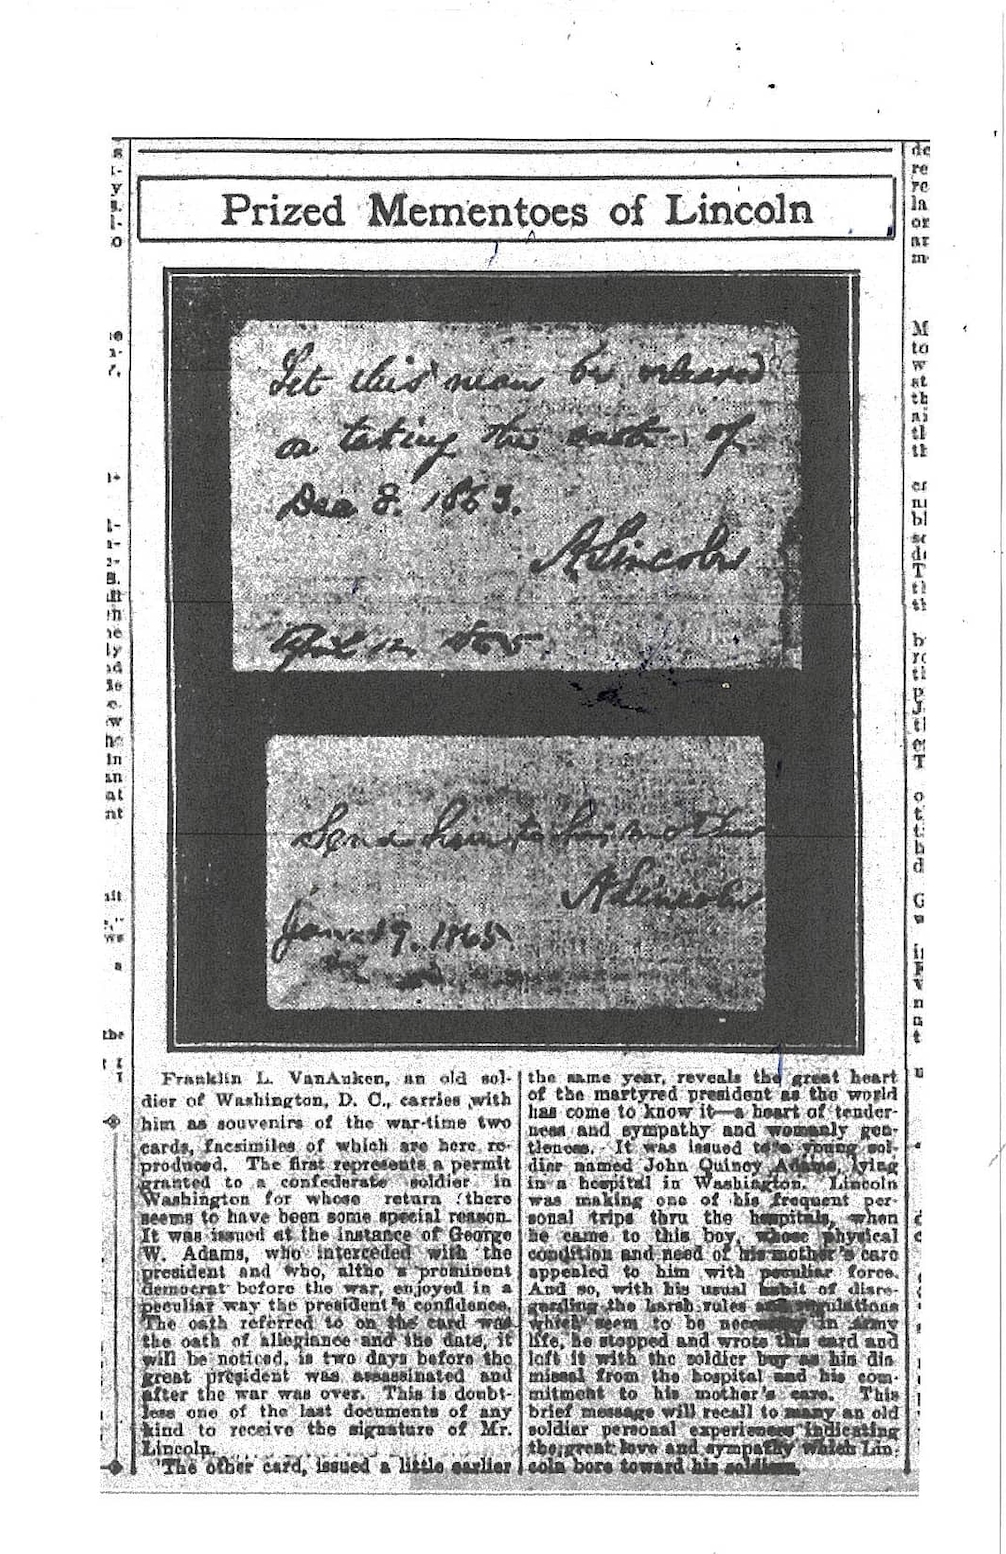 Prized Mementoes of Lincoln
Let this man be released
on taking the oath of
Dec 8. 1863.
A Lincoln
April 12, 1865
Send him to his mother
A Lincoln
Jan. 19. 1865
Franklin L. VanAuken, an old sol-
dier of Washington, D. C., carries with
him as souvenirs of the war-time two
cards, facsimiles of which are here re-
produced. The first represents a permit
granted to a confederate soldier in
Washington for whose return there
seems to have been some special reason.
It was issued at the instance of George
W. Adams, who interceded with the
president and who, altho a prominent
democrat before the war, enjoyed in a
peculiar way the president's confidence.
The oath referred to on the card was
the oath of allegiance and the date, it
will be noticed, is two days before the
great president was assassinated and
after the war was over. This is doubt-
less one of the last documents of any
kind to receive the signature of Mr.
Lincoln.
The other card, issued a little earlier
the same year, reveals the great heart
of the martyred president as the world
has come to know it—a heart of tender-
ness and sympathy and womanly gen-
tleness. It was issued to a young sol-
dier named John Quincy Adams, lying
in a hospital in Washington. Lincoln
was making one of his frequent per-
sonal trips thru the hospitals, when
he came to this boy, whose physical
condition and need of his mother's care
appealed to him with peculiar force.
And so, with his usual habit of disre-
garding the harsh rules and regulations
which seem to be necessary in army
life, he stopped and wrote this card and
left it with the soldier boy as his dis
missal from the hospital and his com-
mitment to his mother's care. This
brief message will recall to many an old
soldier personal experiences indicating
the great love and sympathy which Lin-
coln bore toward his soldiers.